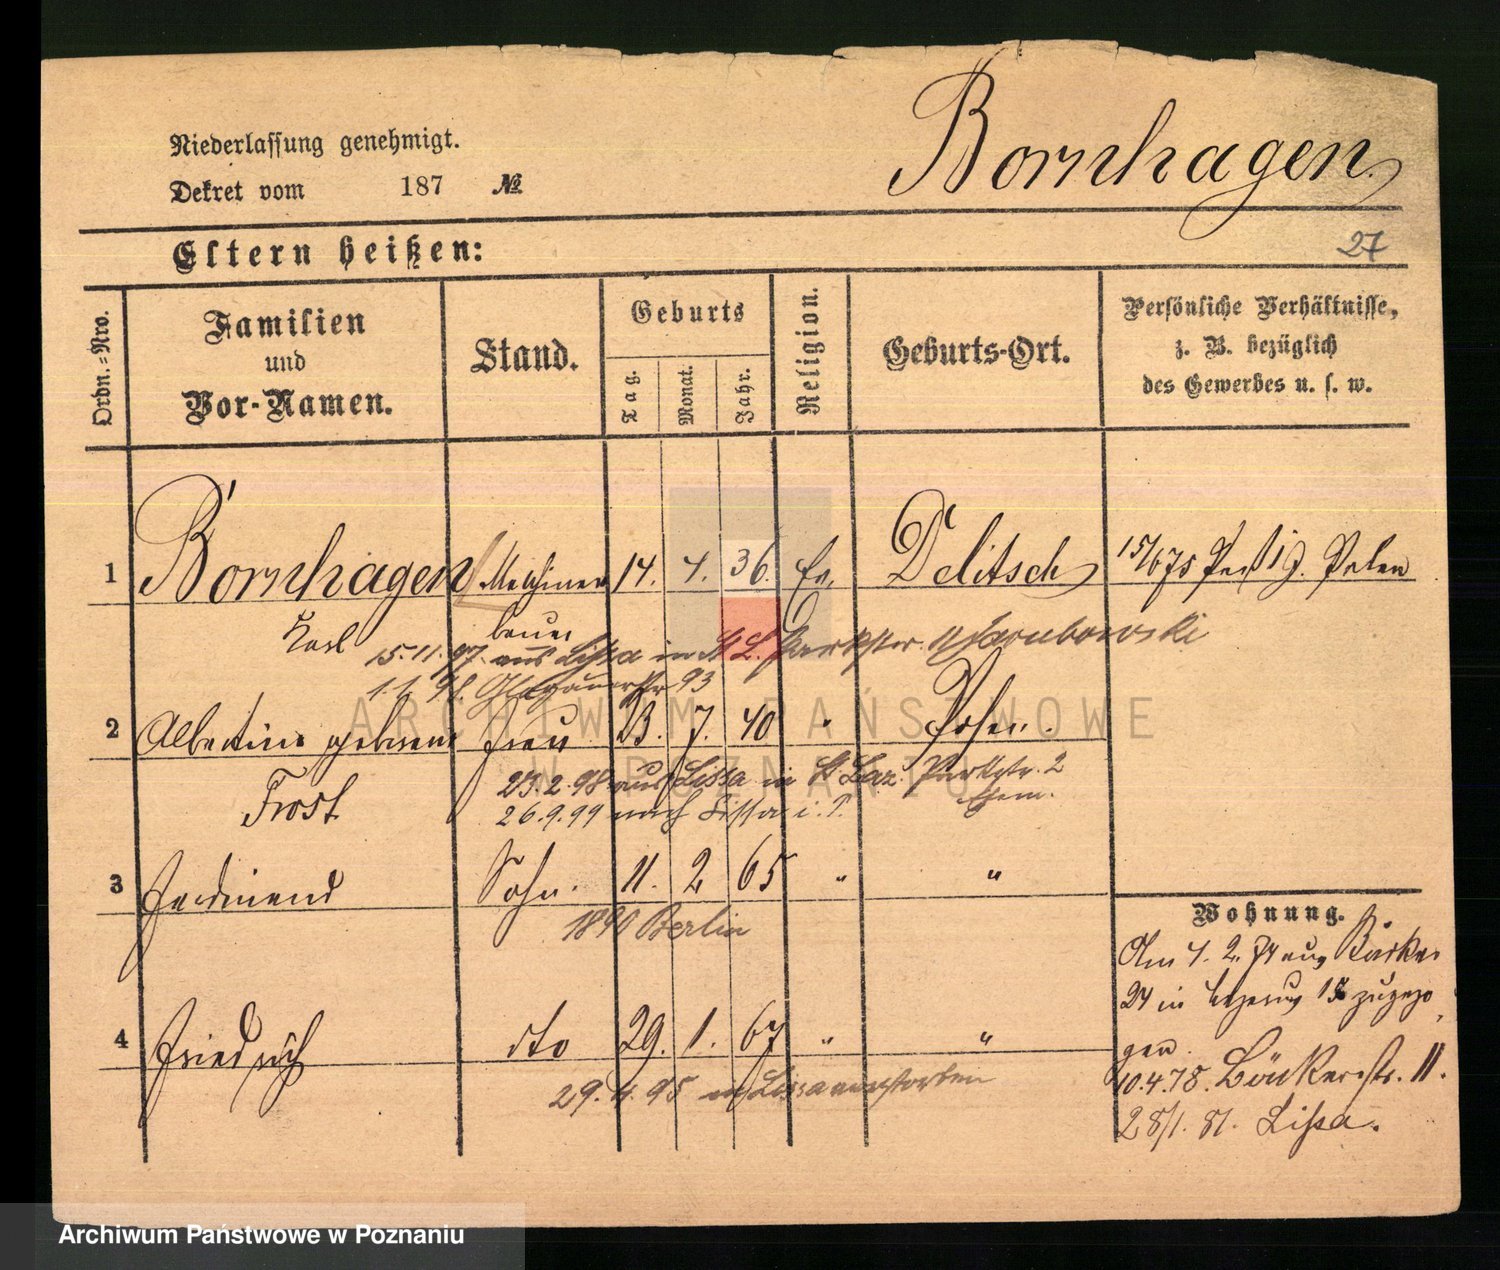 Niederlassung genehmigt.
Dekret vom 187 №
Bornhagen
27
Eltern heißen:
Ordn.-Nro.
Familien und Vor-Namen.
Stand.
Geburts
Tag.
Monat.
Jahr.
Religion.
Geburts-Ort.
Persönliche Verhältnisse,
z. B. bezüglich
des Gewerbes u. s. w.
1 Bornhagen Maschinen 14. 4. 36. Ev. Delitsch 15/6 75
Karl bauer
15.11.97. aus Lissa in St L. Parkstr.
1.1.98. 93
2 Albertine geborene Frau 7. 40 " Posen.
Frost
23.2.98 aus Lissa in St Laz. Parkstr. 2
26.9.99 nach Lissa i. P.
3 Ferdinand Sohn. 11. 2 65 " "
1890 Berlin
4 Friedrich dto 29. 1. 67 " "
29.4.95 in Lissa verstorben
Wohnung.
Am 4. 2. 74 aus Bäcker
24 in 15 zugezo
gen.
10.4.78. Bäckerstr. 11.
28/1. 81. Lissa.
ARCHIWUM PAŃSTWOWE
W POZNANIU
Archiwum Państwowe w Poznaniu